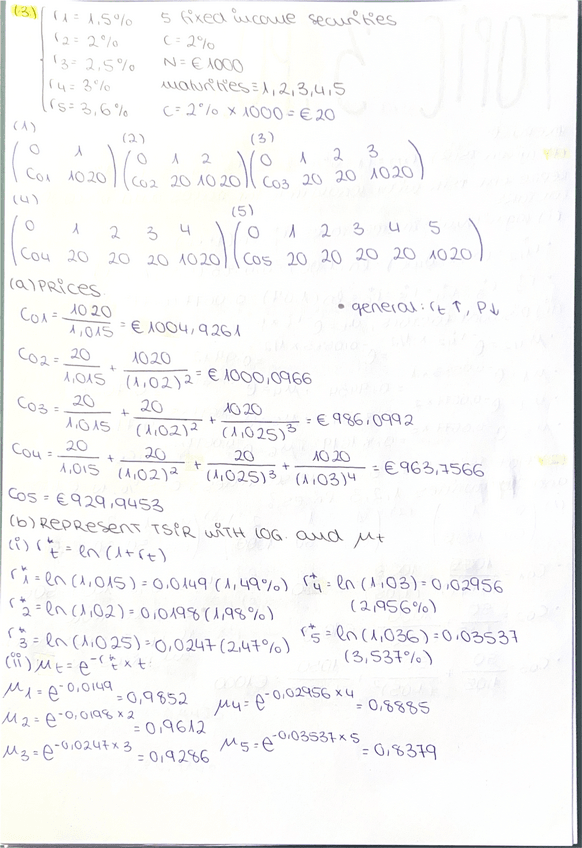 (3) r1 = 1,5% 5 fixed income securities
r2 = 2% C = 2%
r3 = 2,5% N = €1000
r4 = 3% maturities = 1, 2, 3, 4, 5
r5 = 3,6% C = 2% × 1000 = €20
(1) (2) (3)
0 1 0 1 2 0 1 2 3
C01 1020 C02 20 1020 C03 20 20 1020
(4) (5)
0 1 2 3 4 0 1 2 3 4 5
C04 20 20 20 1020 C05 20 20 20 20 1020
(a) PRICES
• general: rt ↑, P↓
C01 = 1020/1,015 = €1004,9261
C02 = 20/1,015 + 1020/(1,02)^2 = €1000,0966
C03 = 20/1,015 + 20/(1,02)^2 + 1020/(1,025)^3 = €986,0992
C04 = 20/1,015 + 20/(1,02)^2 + 20/(1,025)^3 + 1020/(1,03)^4 = €963,7566
C05 = €929,9453
(b) REPRESENT TSIR WITH LOG. and μt
(i) r*t = ln(1+rt)
r*1 = ln(1,015) = 0,0149 (1,49%) r*4 = ln(1,03) = 0,02956
(2,956%)
r*2 = ln(1,02) = 0,0198 (1,98%)
r*3 = ln(1,025) = 0,0247 (2,47%) r*5 = ln(1,036) = 0,03537
(3,537%)
(ii) μt = e^-r*t × t:
μ1 = e^-0,0149 = 0,9852 μ4 = e^-0,02956×4 = 0,8885
μ2 = e^-0,0198×2 = 0,9612
μ3 = e^-0,0247×3 = 0,9286 μ5 = e^-0,03537×5 = 0,8379